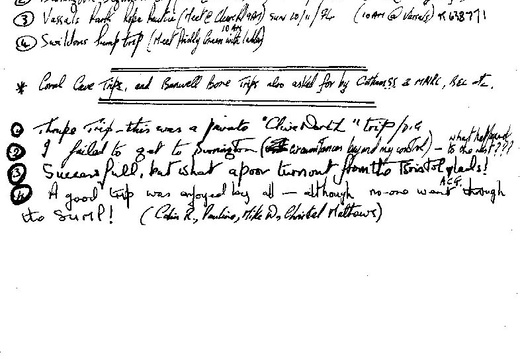 ③ Vassals Park Rope Practice (Meet @ Clive's 9AM) SUN 20/11/94 (10AM @ Vassals)
④ Swildons Sump trip (Meet Priddy Green with ladder) 10AM
* Coral Cave Trips, and Banwell Bone Trips also asked for by Cotham SS & MARC, BEC etc.
① Thrupe Trip - this was a private "Clive North" trip / DIG
② I failed to get to Burrington (circumstances beyond my control) - what happened to the rest???
③ Successfull, but what a poor turnout from the Bristol ACG. glads!
④ A good trip was enjoyed by all - although no-one went through
the SUMP! (Colin R., Pauline, Mike W, Christel Mathows)